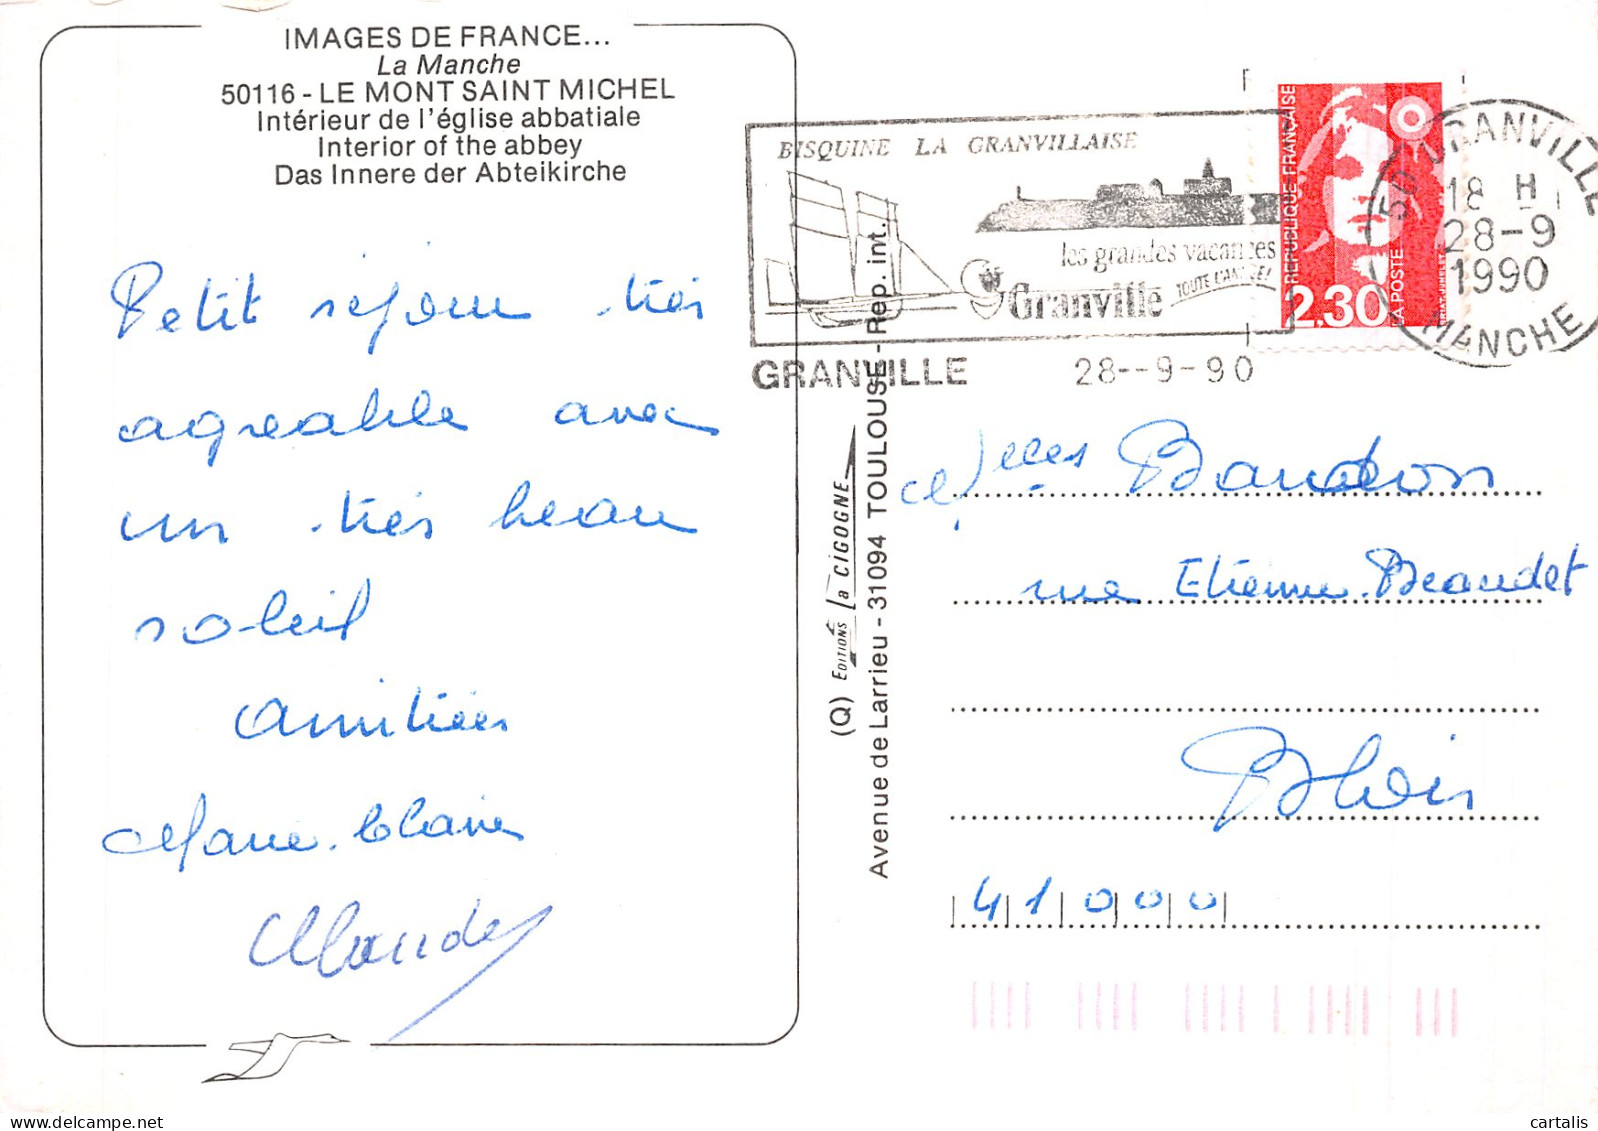 IMAGES DE FRANCE...
La Manche
50116 - LE MONT SAINT MICHEL
Intérieur de l'église abbatiale
Interior of the abbey
Das Innere der Abteikirche
Petit séjour très
agreable avec
un très beau
soleil
amitiés
Marie.Claire
Claude
(Q) EDITIONS la CIGOGNE
Avenue de Larrieu - 31094 TOULOUSE - Rep. int.
BISQUINE LA GRANVILLAISE
les grandes vacances
Granville TOUTE L'ANNÉE!
GRANVILLE 28--9-90
REPUBLIQUE FRANÇAISE
2,30
LA POSTE
50 GRANVILLE
18 H
28-9
1990
MANCHE
Baudon
rue Etienne.Beaudet
Blois
41000
cartalis